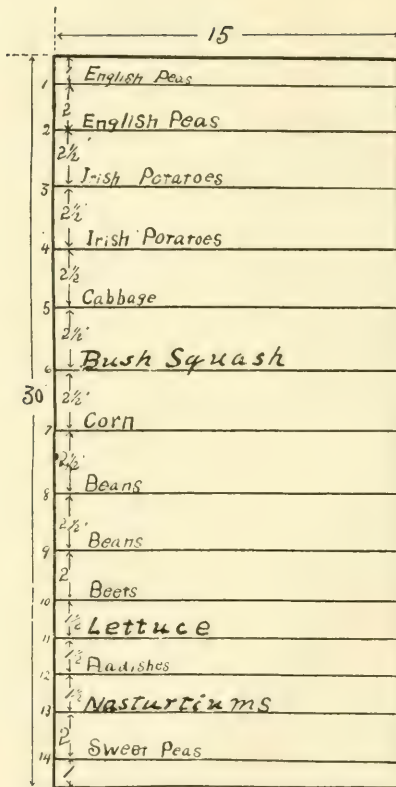 15
1 English Peas
1
2
English Peas
2
2½'
Irish Potatoes
3
2½'
Irish Potatoes
4
2½
Cabbage
5
2½'
Bush Squash
6
30
2½'
Corn
7
2½'
Beans
8
2½'
Beans
9
2
Beets
10
1½
Lettuce
11
1½
Radishes
12
1½
Nasturtiums
13
2
Sweet Peas
14
1